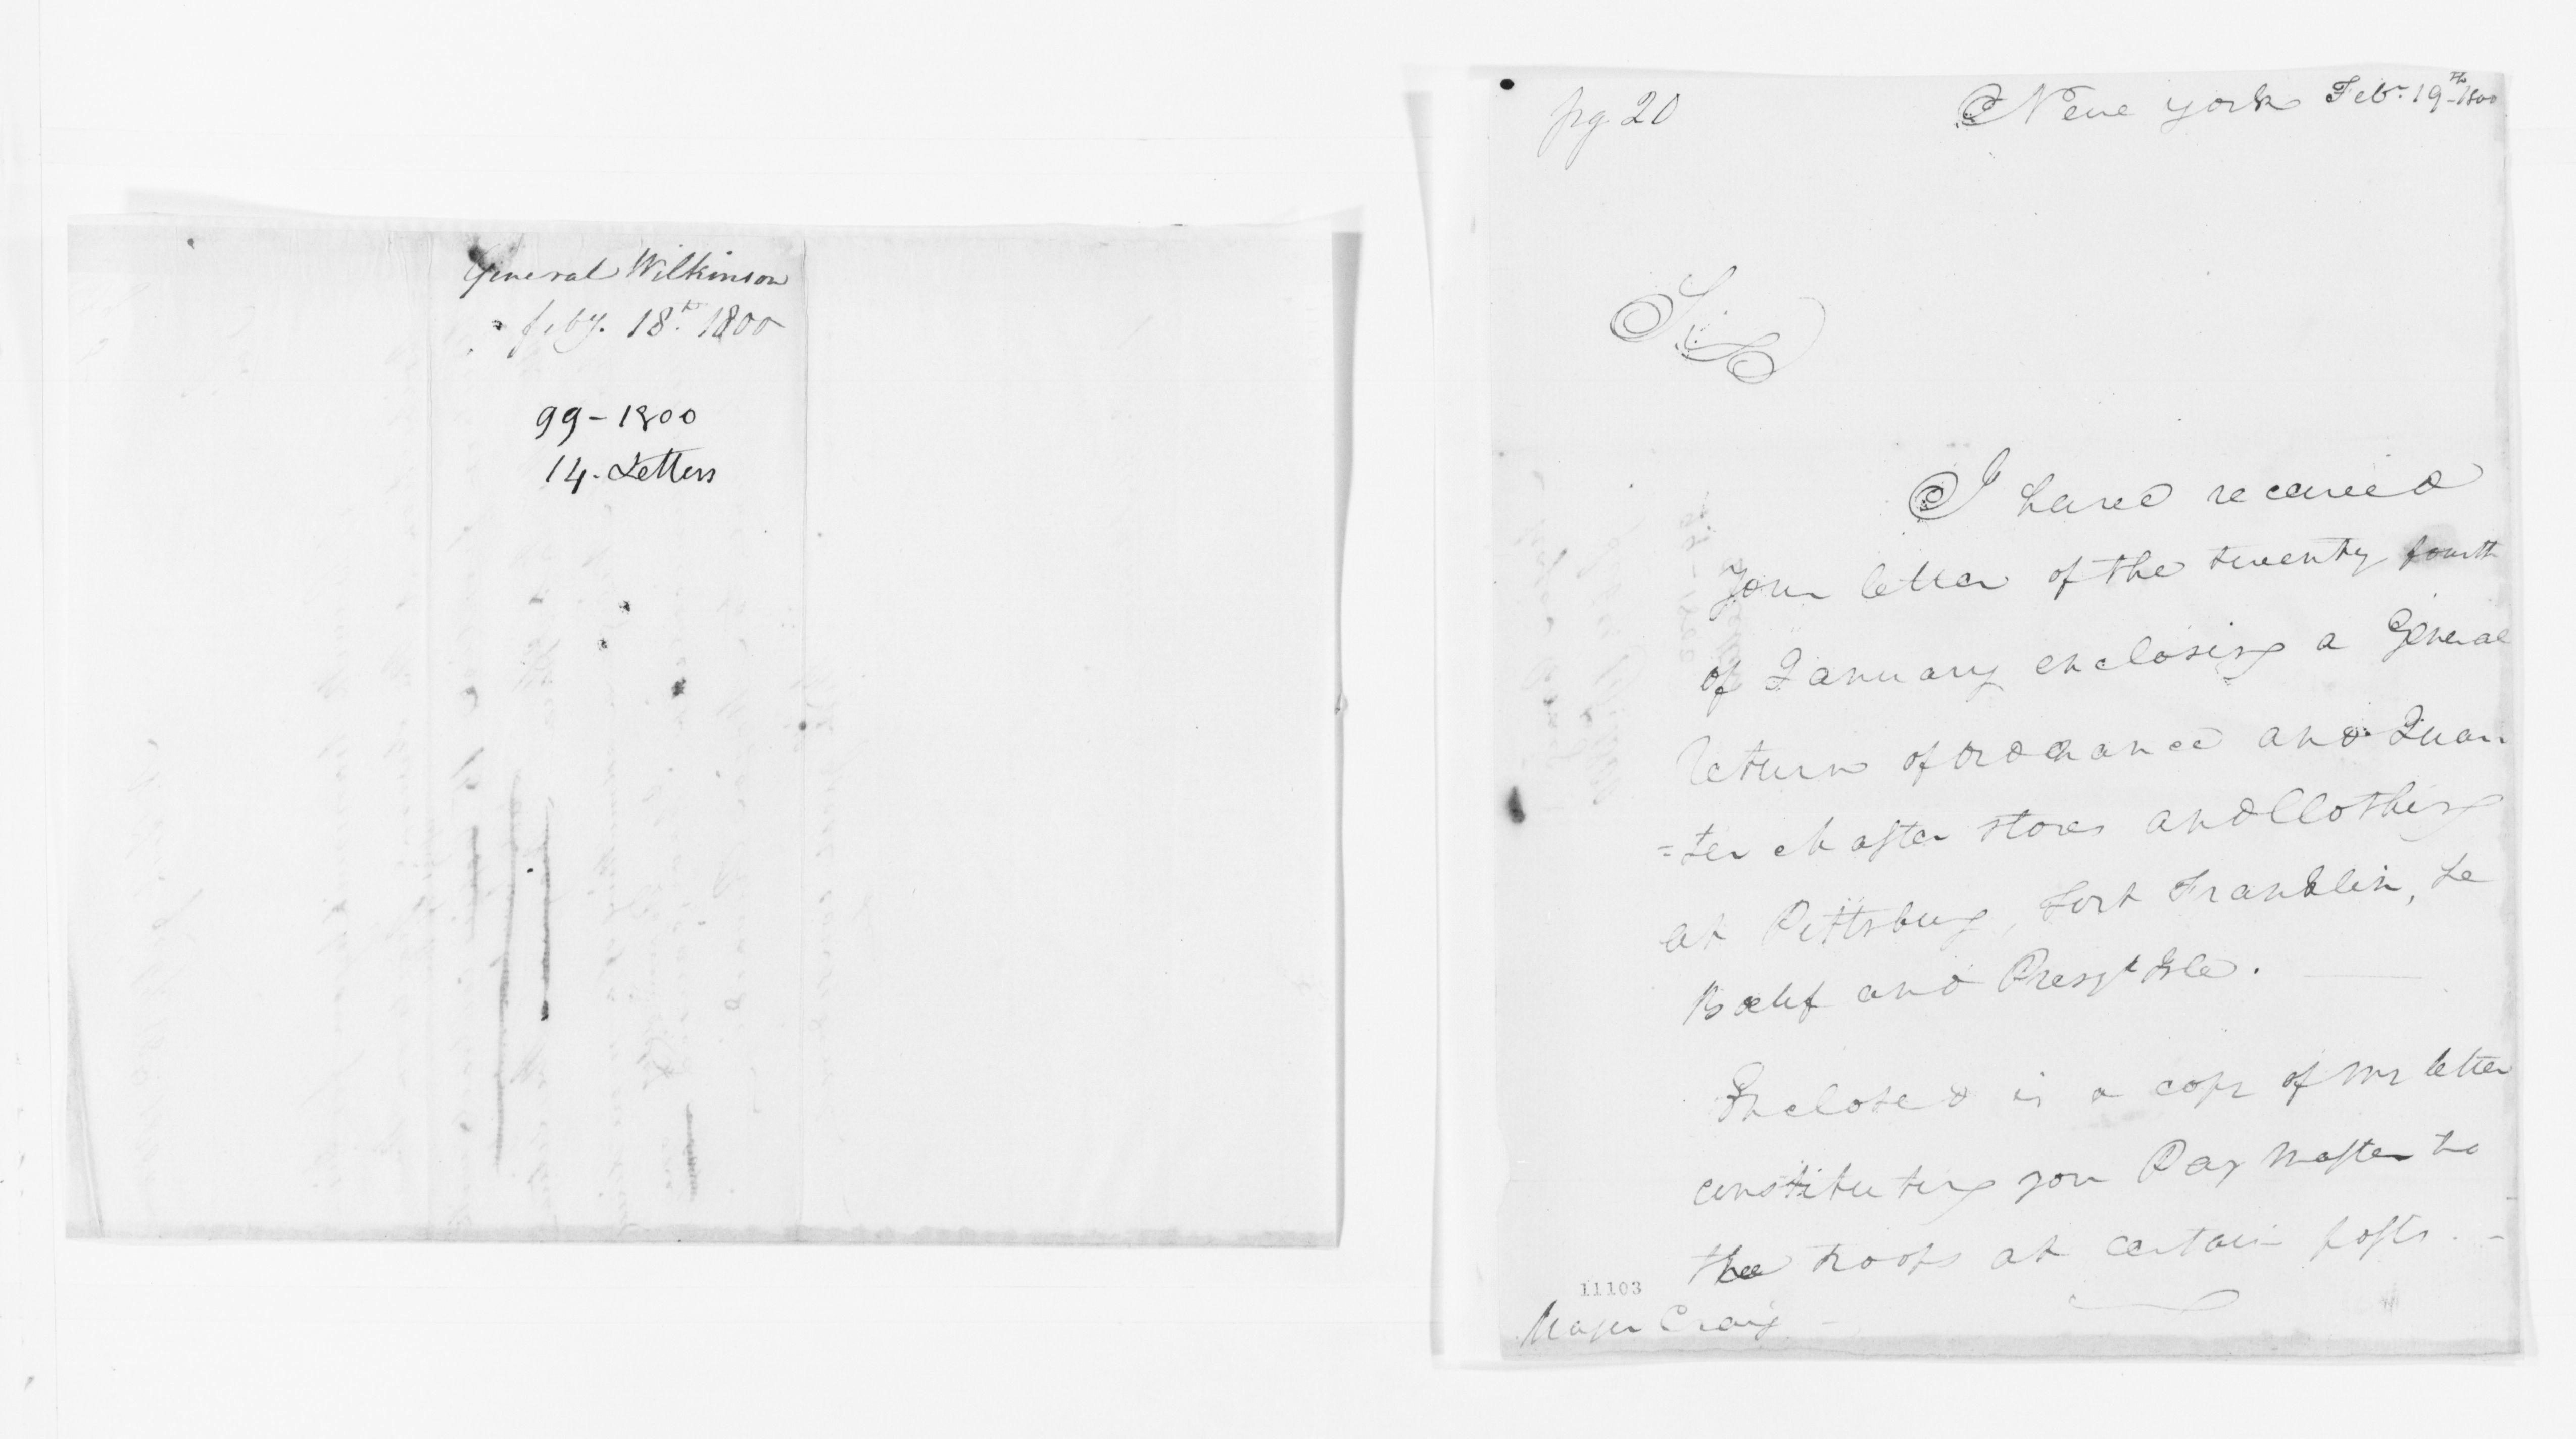 General Wilkinson
feby. 18.th 1800
99-1800
14. Letters
pg. 20
New york Feb.r 19th 1800
Sir
I have received
Your letter of the twenty fourth
of January enclosing a General
return of ordnance and Quar
=ter master stores and Clothing
at Pittsburg, Fort Franklin, Le
Bœuf and Presqu Isle.
Enclosed is a copy of my letter
constituting you Pay Master to
the troops at certain posts.
11103
Major Craig